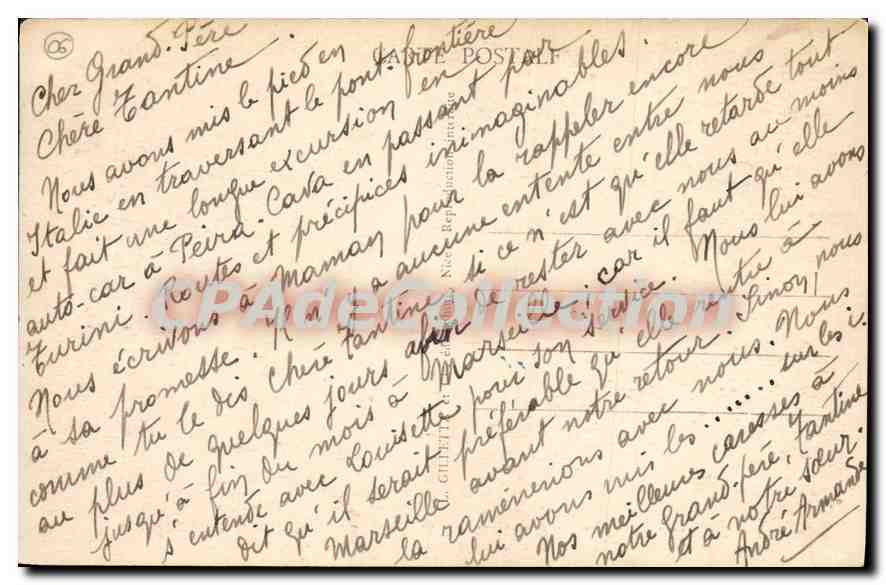 06
CARTE POSTALE
Cher Grand-Père
Chère Tantine.
Nous avons mis le pied en
Italie en traversant le pont-frontière
et fait une longue excursion en
auto-car à Peira-Cava en passant par
Turini. Routes et précipices inimaginables.
Nous écrivons à Maman pour la rappeler encore
à sa promesse. Il n'y a aucune entente entre nous
comme tu le dis Chère Tantine, si ce n'est qu'elle retarde tout
au plus de quelques jours afin de rester avec nous au moins
jusqu'à fin du mois à Marseille, car il faut qu'elle
s'entende avec Louisette pour son service. Nous lui avons
dit qu'il serait préférable qu'elle rentre à
Marseille avant notre retour. Sinon, nous
la ramènerions avec nous. Nous
lui avons mis les ........ sur les i.
Nos meilleures caresses à
notre Grand-père, Tantine
et à notre sœur.
André Armande
L. GILLETTA Nice Reproduction interdite
CPADeCollection.com